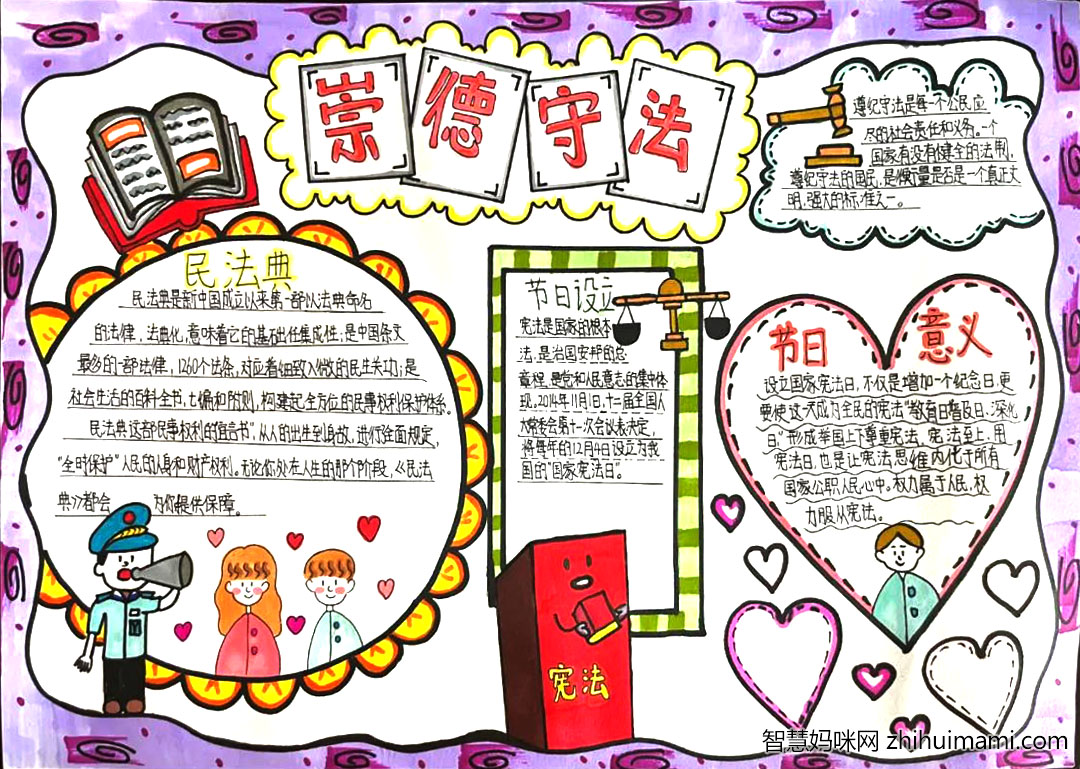 崇德守法
遵纪守法是每一个公民应
尽的社会责任和义务。一个
国家有没有健全的法制,
遵纪守法的国民,是衡量是否是一个真正文
明,强大的标准之一。
民法典
民法典是新中国成立以来第一部以法典命名
的法律，法典化，意味着它的基础性集成性；是中国条文
最多的一部法律，1260个法条，对应着细致入微的民生关切；是
社会生活的百科全书，七编和附则，构建起全方位的民事权利保护体系。
民法典这部民事权利的"宣言书"，从人的出生到身故，进行全面规定，
"全时保护"人民的人身和财产权利。无论你处在人生的那个阶段，《民法
典》都会 为你提供保障。
节日设立
宪法是国家的根本
法，是治国安邦的总
章程，是党和人民意志的集中体
现。2014年11月1日,十二届全国人
大常委会第十一次会议表决定，
将每年的12月4日设立为我
国的"国家宪法日"。
节日 意义
设立国家宪法日，不仅是增加一个纪念日，更
要使这一天成为全民的宪法"教育日普及日、深化
日"形成举国上下尊重宪法、宪法至上、用
宪法日,也是让宪法思维内化于所有
国家公职人民心中。权力属于人民，权
力服从宪法。
宪法
智慧妈咪网 zhihuimami.com